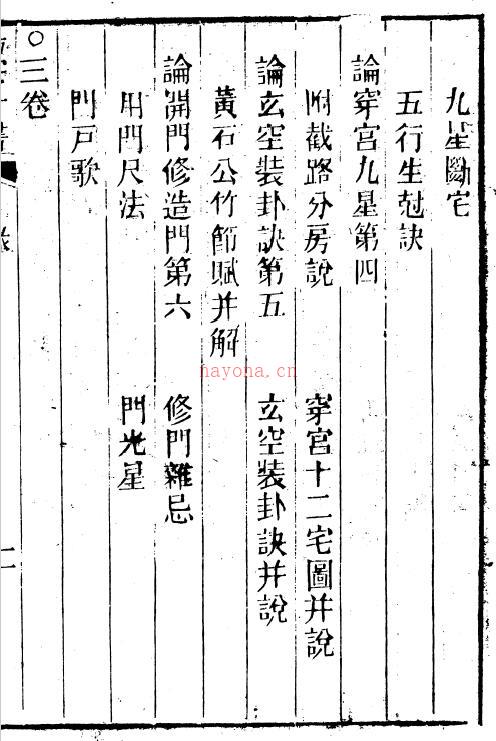 九星斷宅
五行生尅訣
論穿宮九星第四
附截路分房說 穿宮十二宅圖并說
論玄空裝卦訣第五 玄空裝卦訣并說
黃石公竹節賦并解
論開門修造門第六 修門雜忌
用門尺法 門光星
門戶歌
○三卷
hayona.cn